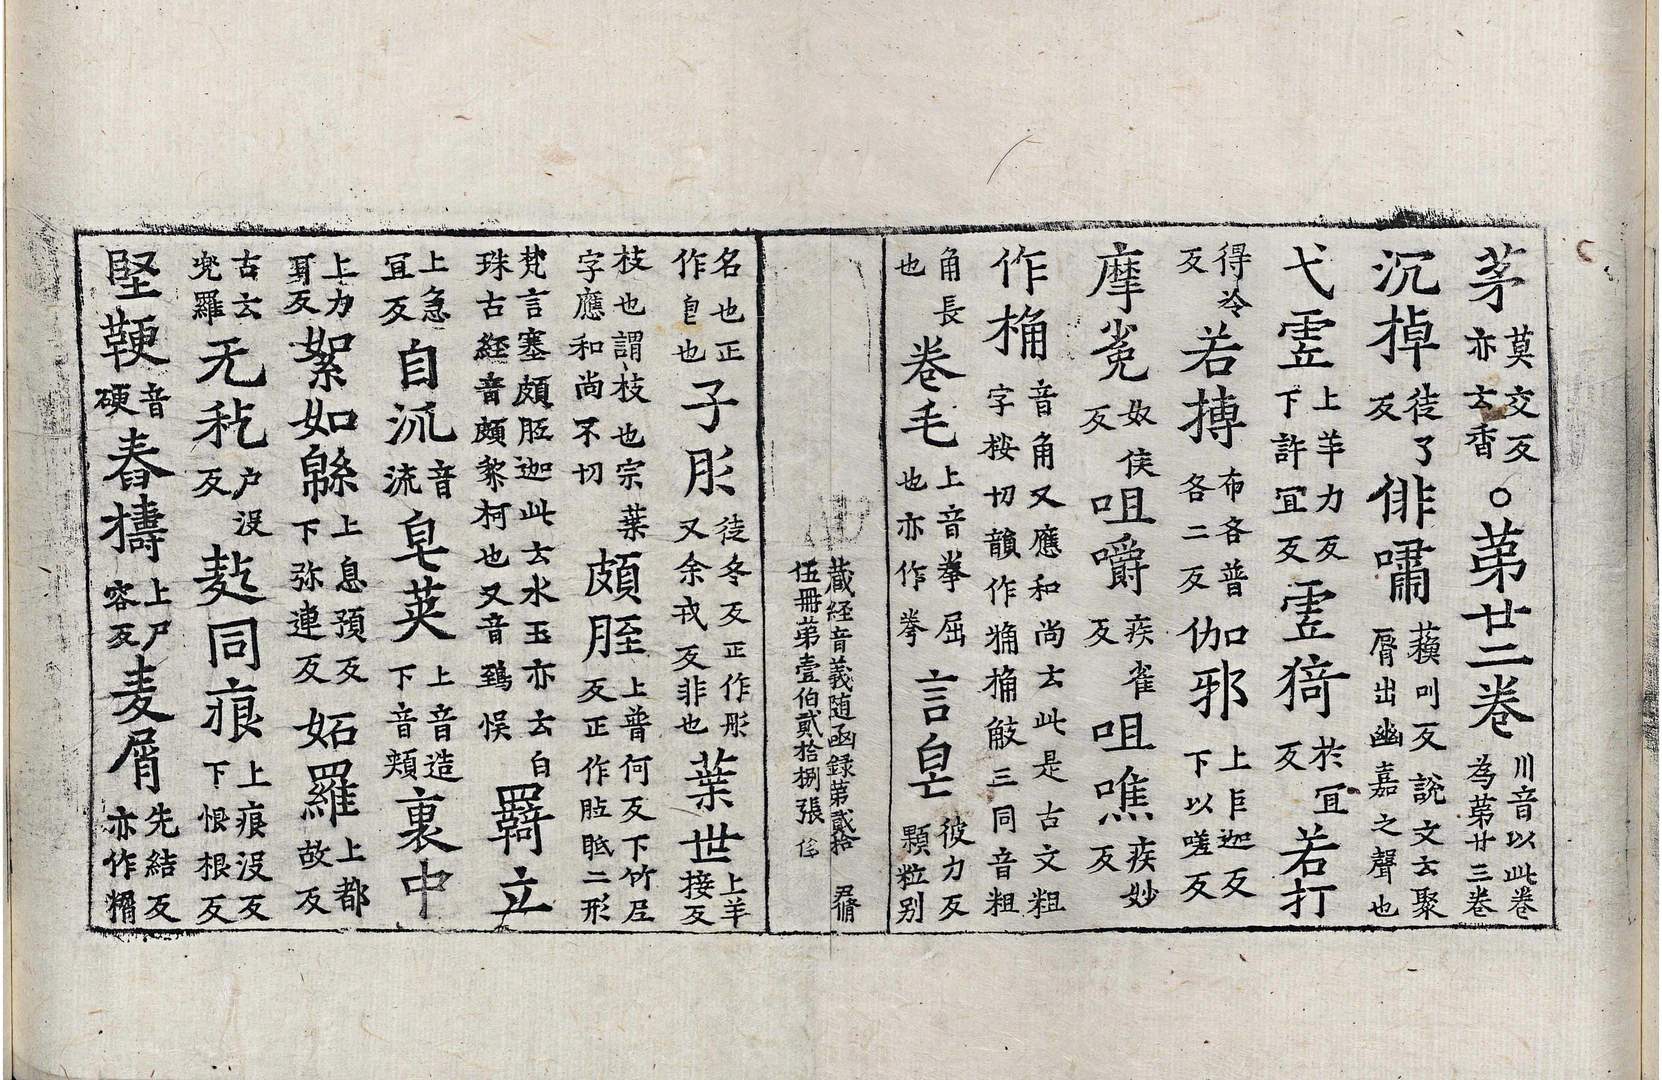 茅莫交反亦云香○第廿二卷川音以此卷為第廿三卷
沉掉徒了反俳嘯蘋叫反說文云聚脣出幽嘉之聲也
弋霊上羊力反下許冝反霊猗於冝反若打
得冷反若搏布各普各二反伽邪上巨迦反下以嗟反
摩㝹奴侯反咀嚼疾雀反咀噍疾妙反
作桷音角又應和尚云此是古文粗字桉切韻作觕桷觙三同音粗
角長也卷毛上音拳屈也亦作拳言皀彼力反顆粒別
藏經音義随函録第貳拾伍冊第壹伯貳拾捌張
名也正作皀也子肜徒冬反正作彤又余戎反非也葉世上羊接反
枝也謂枝也宗葉字應和尚不切頗胵上普何反下竹尼反正作胝䏡二形
梵言塞頗胝迦此云水玉亦云白珠古經音頗黎柯也又音鵄悮羇立
上急冝反自泒音流皂莢上音造下音頰裏中
上力耳反絮如緜上息預反下弥連反妬羅上都故反
古云兠羅无籺户沒反麧同痕上痕沒反下恨根反
堅鞕音硬舂擣上尸容反麦屑先結反亦作糏